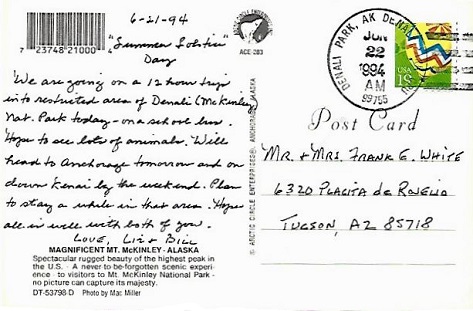 6-21-94
"Summer Solstice"
Day
7 23748 21000 4
ACE-283
We are going on a 12 hour trip
into restricted area of Denali (McKinley)
Nat. Park today - on a school bus.
Hope to see lots of animals. Will
head to Anchorage tomorrow and on
down Kenai by the weekend. Plan
to stay a while in that area. Hope
all is well with both of you.
Love, Liz & Bill
MAGNIFICENT MT. McKINLEY - ALASKA
Spectacular rugged beauty of the highest peak in
the U.S. - A never to-be-forgotten scenic experi-
ence - to visitors to Mt. McKinley National Park -
no picture can capture its majesty.
DT-53798-D Photo by Mac Miller
© ARCTIC CIRCLE ENTERPRISES, ANCHORAGE, ALASKA
DENALI PARK, AK
JUN
22
1994
AM
99755
USA
19
Post Card
Mr. & Mrs. Frank E. White
6320 Placita de
Tucson, AZ 85718